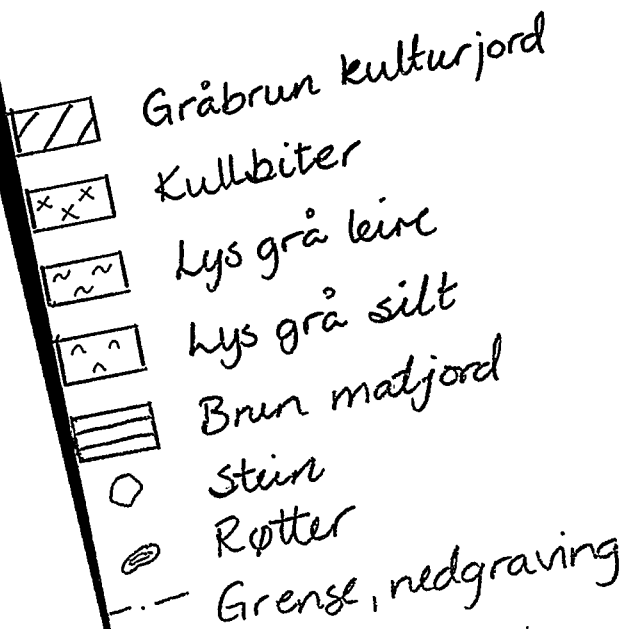 Gråbrun kulturjord
Kullbiter
Lys grå leire
Lys grå silt
Brun matjord
Stein
Røtter
Grense, nedgraving